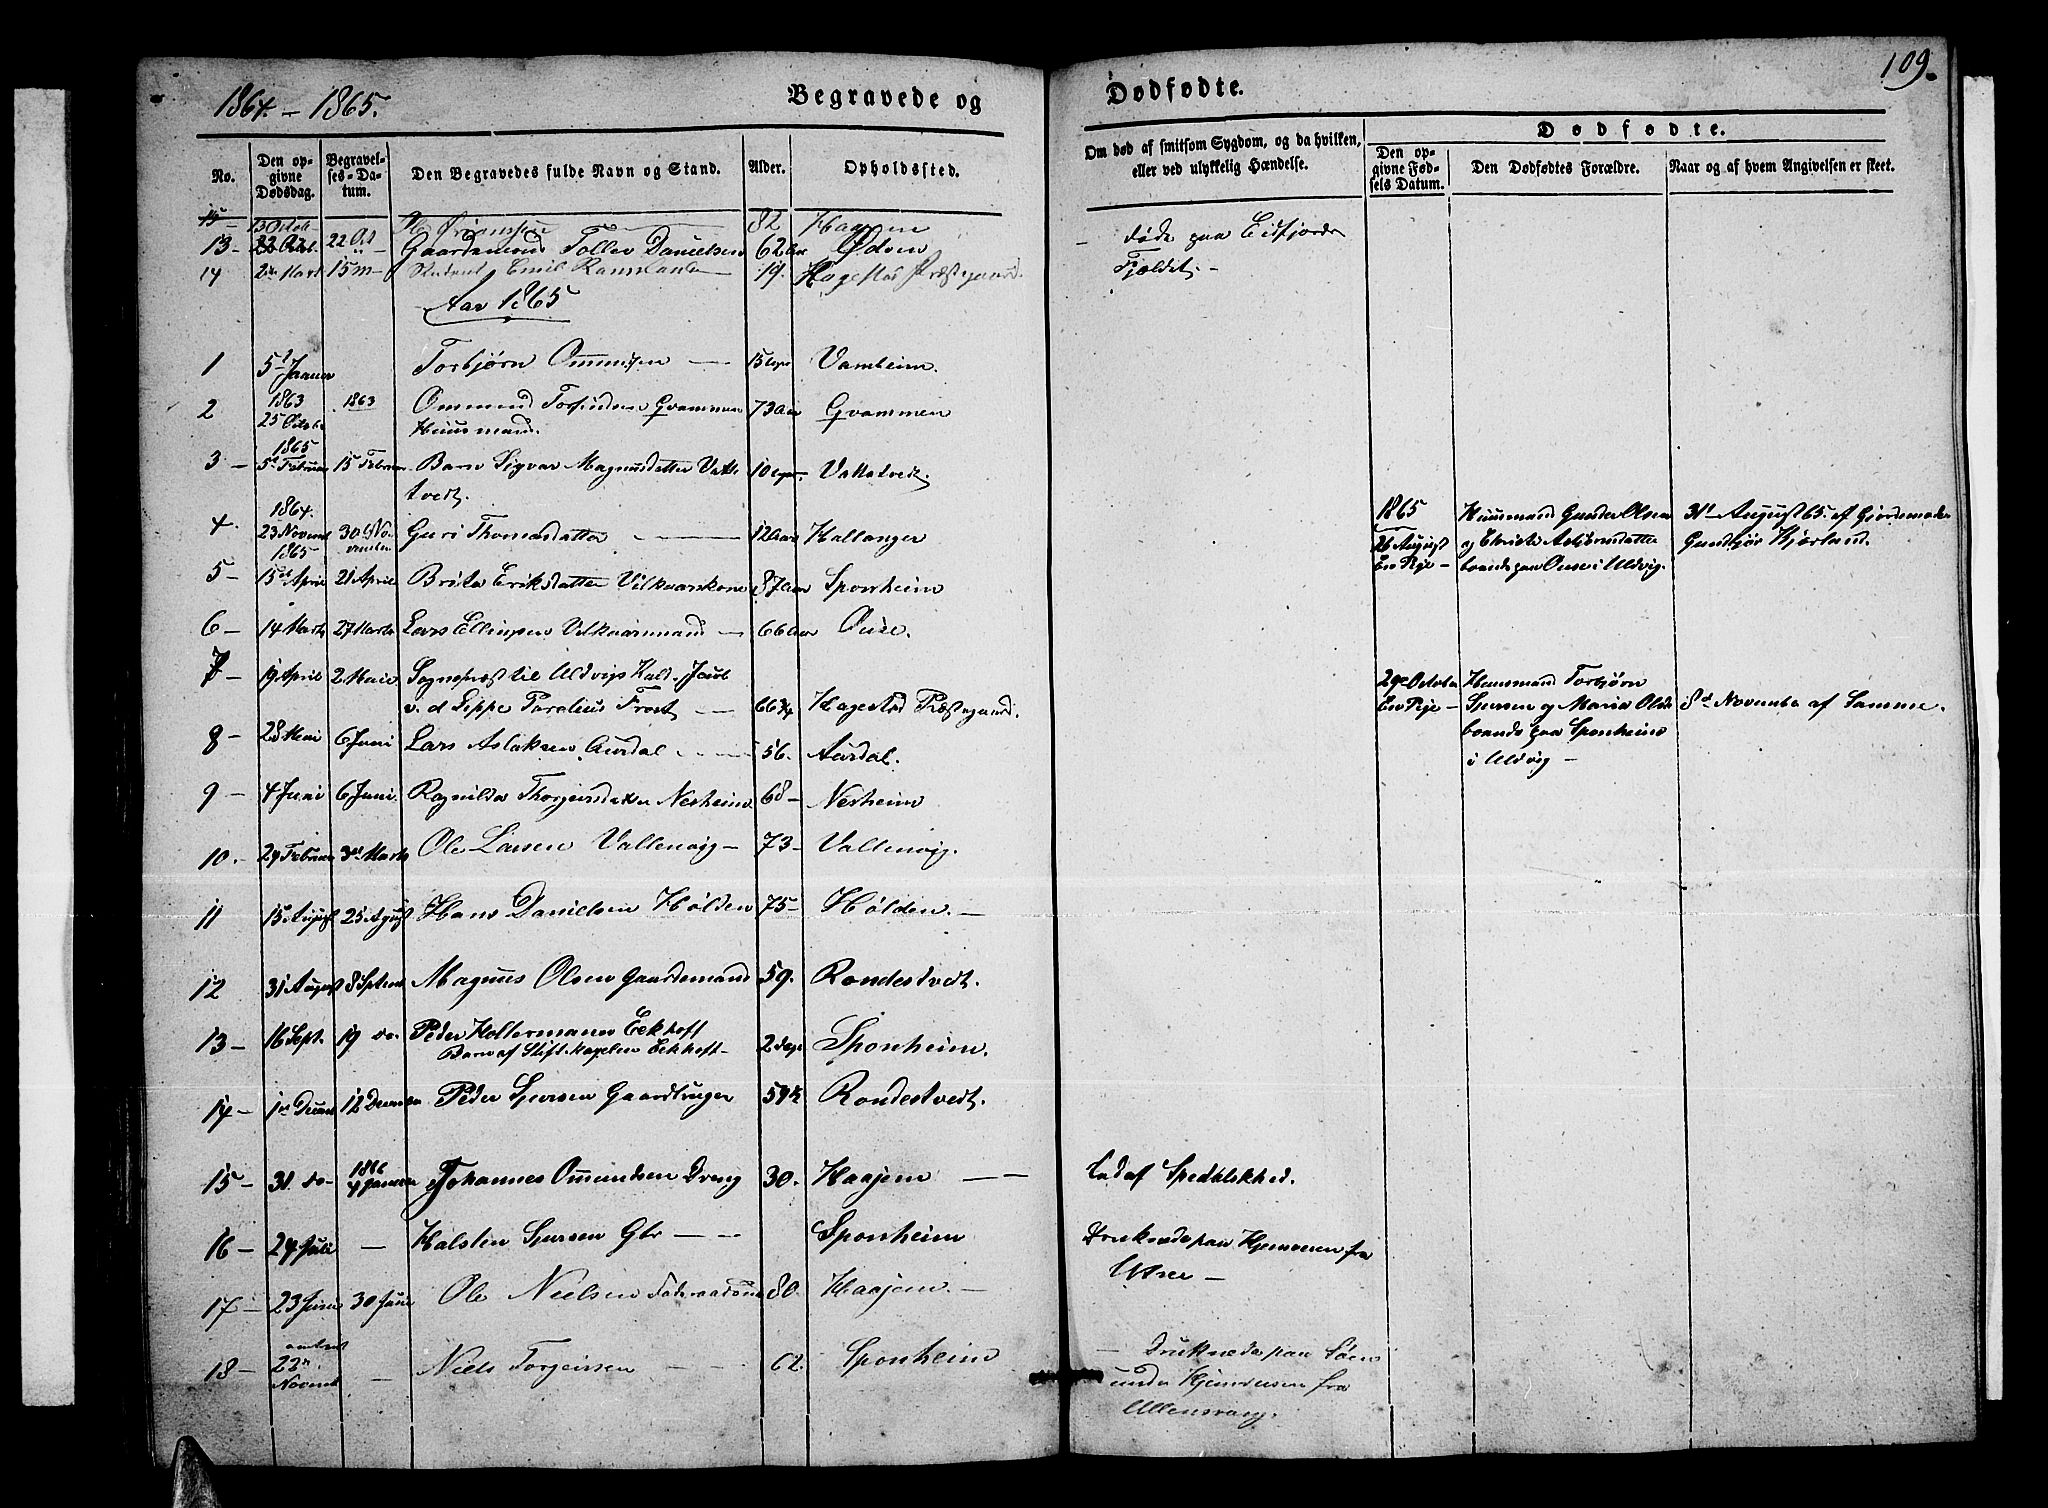 109.
1864. – 1865.
Begravede og
Dødfødte.
No.
Den opgivne Dødsdag.
Begravelses-Datum.
Den Begravedes fulde Navn og Stand.
Alder.
Opholdsted.
Om død af smitsom Sygdom, og da hvilken, eller ved ulykkelig Hændelse.
Dødfødte.
Den opgivne Fødsels Datum.
Den Dødfødtes Forældre.
Naar og af hvem Angivelsen er skeet.
82
13 – 22 Oct Gaardmand Tollev Danielsen 62 Aar Ødven – døde paa Eidfjords
Fjeldet. –
14 2 Mart 15 M – Student Emil 19. Hagestad Præstegaard.
Aar 1865
1 5 Januar Torbjørn Ommundsen – 15 Uger Vambeim.
2 1863 25 Octob 1863 Ommund Torfindsen Qvammen 73 Aar Qvammen
Huusmand.
3 – 1865 5 Februar 15 Februar Barn Sigvar Magnusdatter Vatte 10 Uger. Vattetvedt.
tvedt.
4. 1864. 23 Novemb 30 November Guri Thomasdatter – 12 Aar Hallanger
5 – 1865 15 April 21 April Brita Eriksdatter Vilkaarskone 87 Aar Sponheim
6 – 14 Marts 27 Marts Lars Ellingsen Vilkaarsmand – 66 Aar Ouse.
7 – 19 April 2 Maii Sognepræst til Ulvigs Kald. Jacob
v. d. Lippe Parelius Frost – 66 3/4 Hagestad Præstegaard.
8 – 28 Mai 6 Juni Lars Aslaksen Aurdal 56. Aurdal.
9 – 4 Juni 6 Juni. Ragnilda Thorgersdatter Nesheim 68 – Nesheim
10. – 24 Februar 3 Marts Ole Larsen Vallevig – 73 – Vallevig.
11 15 August 25 August Hans Danielsen Hølden 75 – Hølden. –
12 31 August 8 Septem Magnus Olsen Gaardmand 59. Rondestvedt.
13 – 16 Sept. 19 do. Peder Holtermann Eckhoff
Barn af Stiftskapelan Eckhoff – 2 dage Sponheim.
14 – 1 Decemb 12 December Peder Sjursen Gaardbruger 59 1/2 Rondestvedt.
15 – 31. do – 1866 4 Januar Johannes Ommundsen Dreng 30. Haajem – – Død af Spedalskhed.
16 – 24 Juli – Halsten Sjursen Gbr – Sponheim Druknede paa Hjemveien fra
Utne –
17 – 23 Juni 30 Juni Ole Nielsen Føderaadsmd 80. Haajem. –
18 – omtrent 22 Novemb – Niels Torgeirssen – 62. Sponheim – Druknede paa Søen
under Hjemreisen fra
Ullensvang.
1865
26 August
En Pige –
Huusmand Gunder Olsen
og Christi Asbjørnsdatter
boende paa Ouse i Ulvig.
31 August 65. af Gjordemoder
Gundbjør Kjærland.
29 October
En Pige –
Huusmand Torbjørn
Sjursen og Maria Olsd
boende paa Sponheim
i Ulvig –
8 November af Samme.